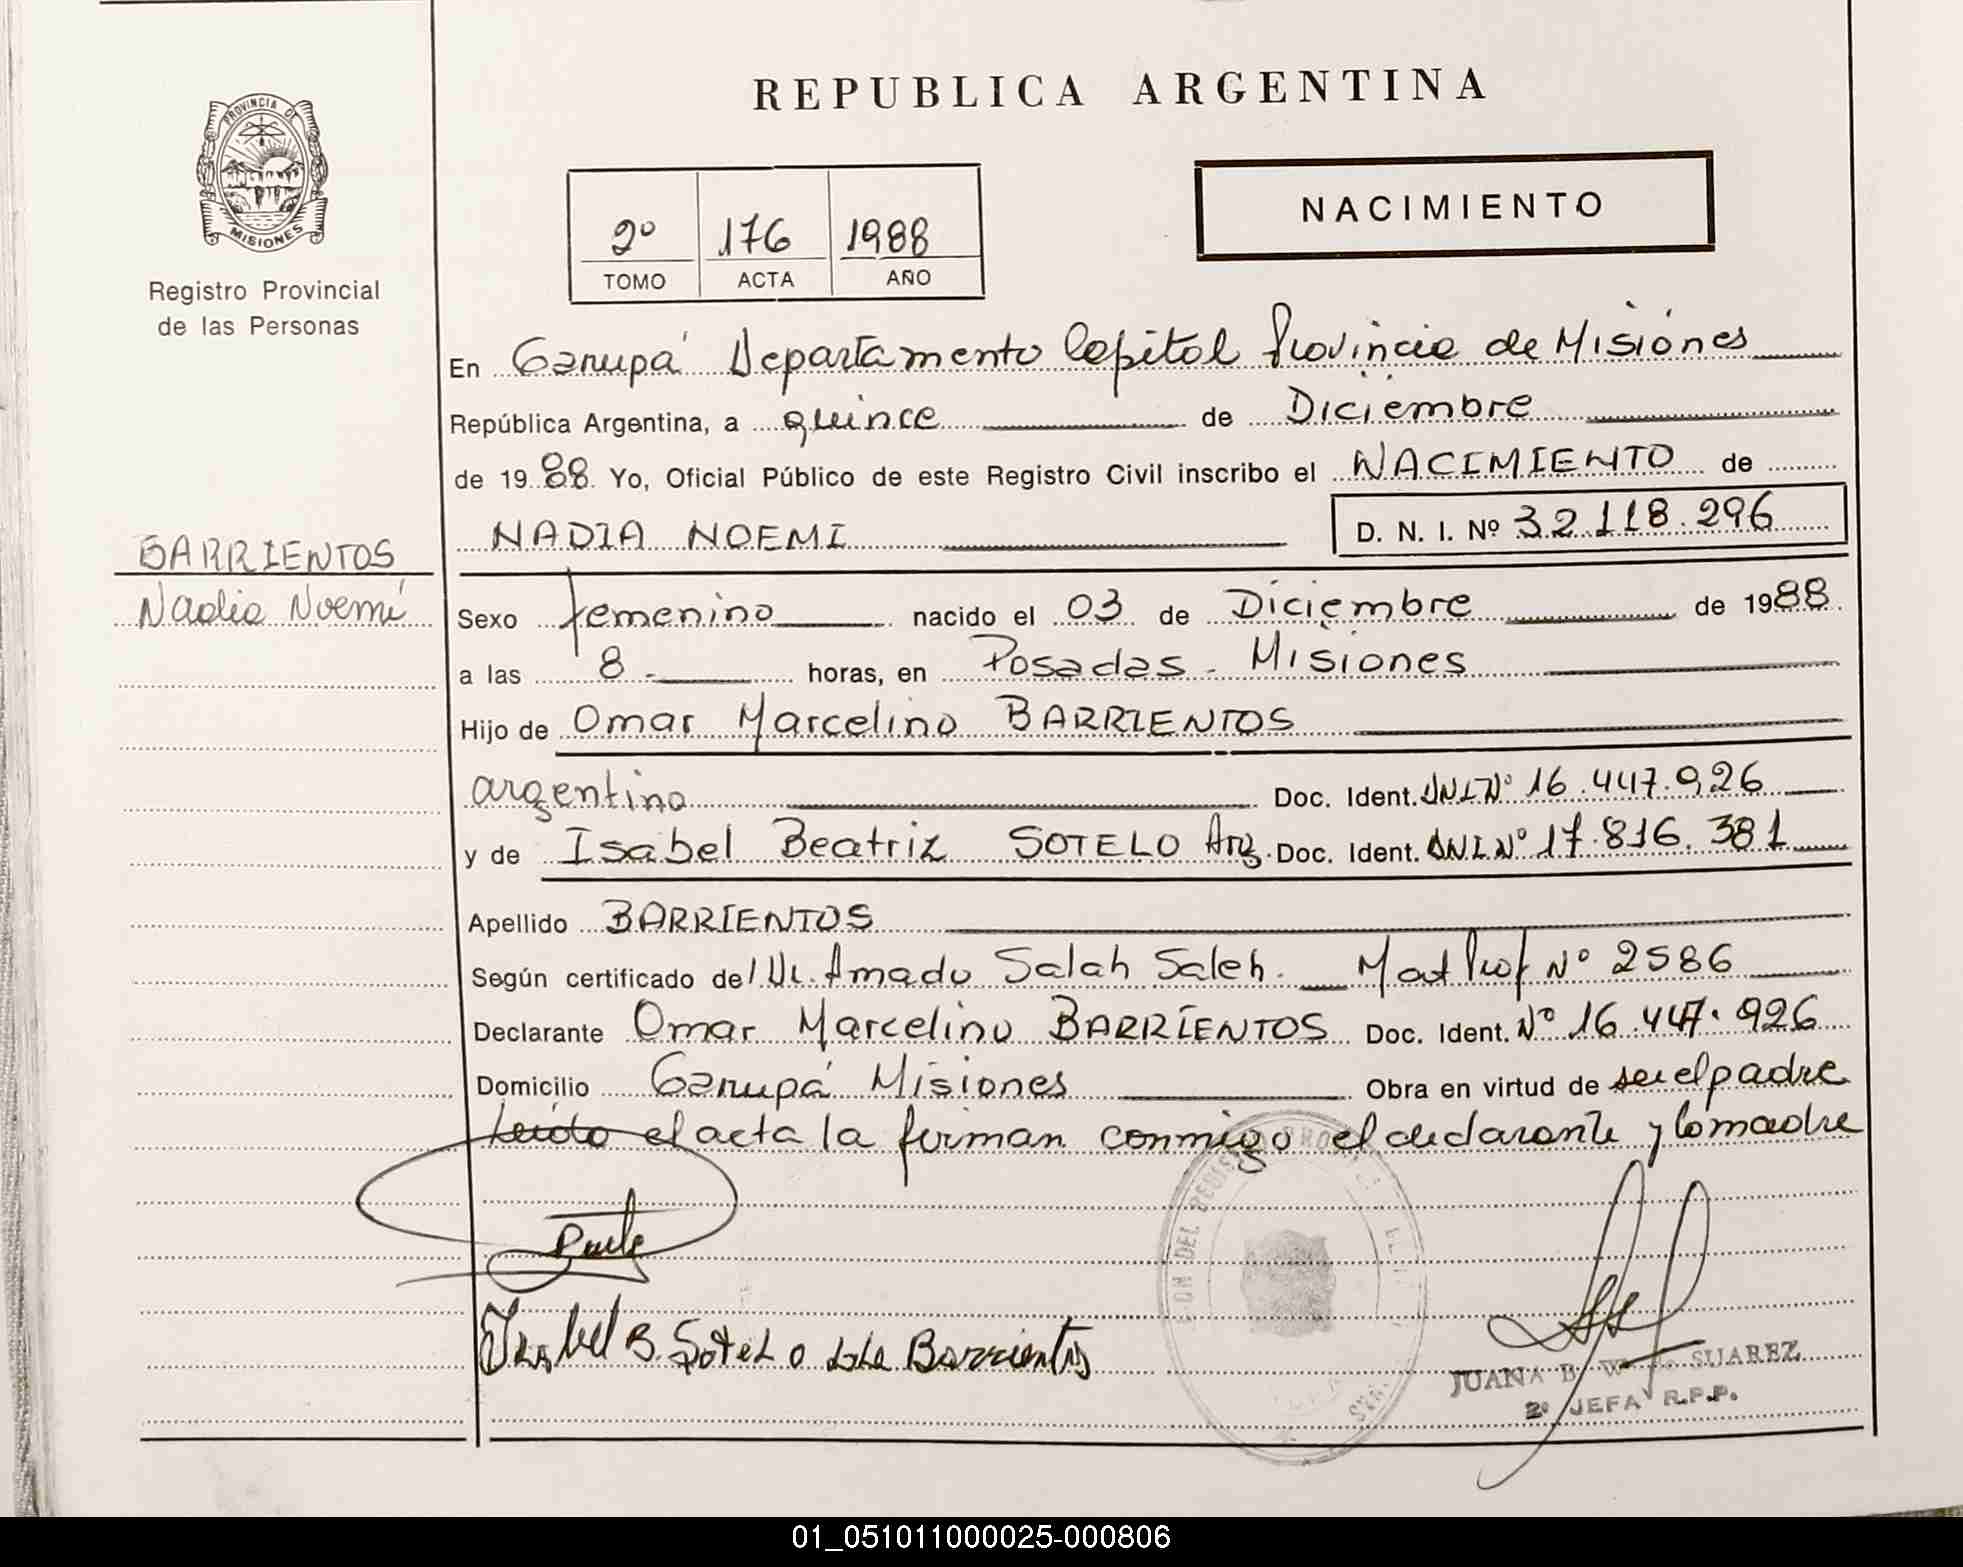 REPUBLICA ARGENTINA
PROVINCIA DE
MISIONES
Registro Provincial
de las Personas
2º 176 1988
TOMO ACTA AÑO
NACIMIENTO
En Garupá Departamento Capital Provincia de Misiones
República Argentina, a quince de Diciembre
de 1988 Yo, Oficial Público de este Registro Civil inscribo el NACIMIENTO de
NADIA NOEMI D. N. I. Nº 32.118.296
BARRIENTOS
Nadia Noemí
Sexo femenino nacido el 03 de Diciembre de 1988.
a las 8.- horas, en Posadas - Misiones
Hijo de Omar Marcelino BARRIENTOS
argentino Doc. Ident. DNI Nº 16.447.926
y de Isabel Beatriz SOTELO Arg. Doc. Ident. DNI Nº 17.816.381
Apellido BARRIENTOS
Según certificado del Dr. Amado Salah Saleh. Mat Prof Nº 2586
Declarante Omar Marcelino BARRIENTOS Doc. Ident. Nº 16.447.926
Domicilio Garupá Misiones Obra en virtud de ser el padre
Leído el acta la firman conmigo el declarante y la madre
Isabel B. Sotelo de Barrientos
JUANA B. SUAREZ
2º JEFA R.P.P.
01_051011000025-000806